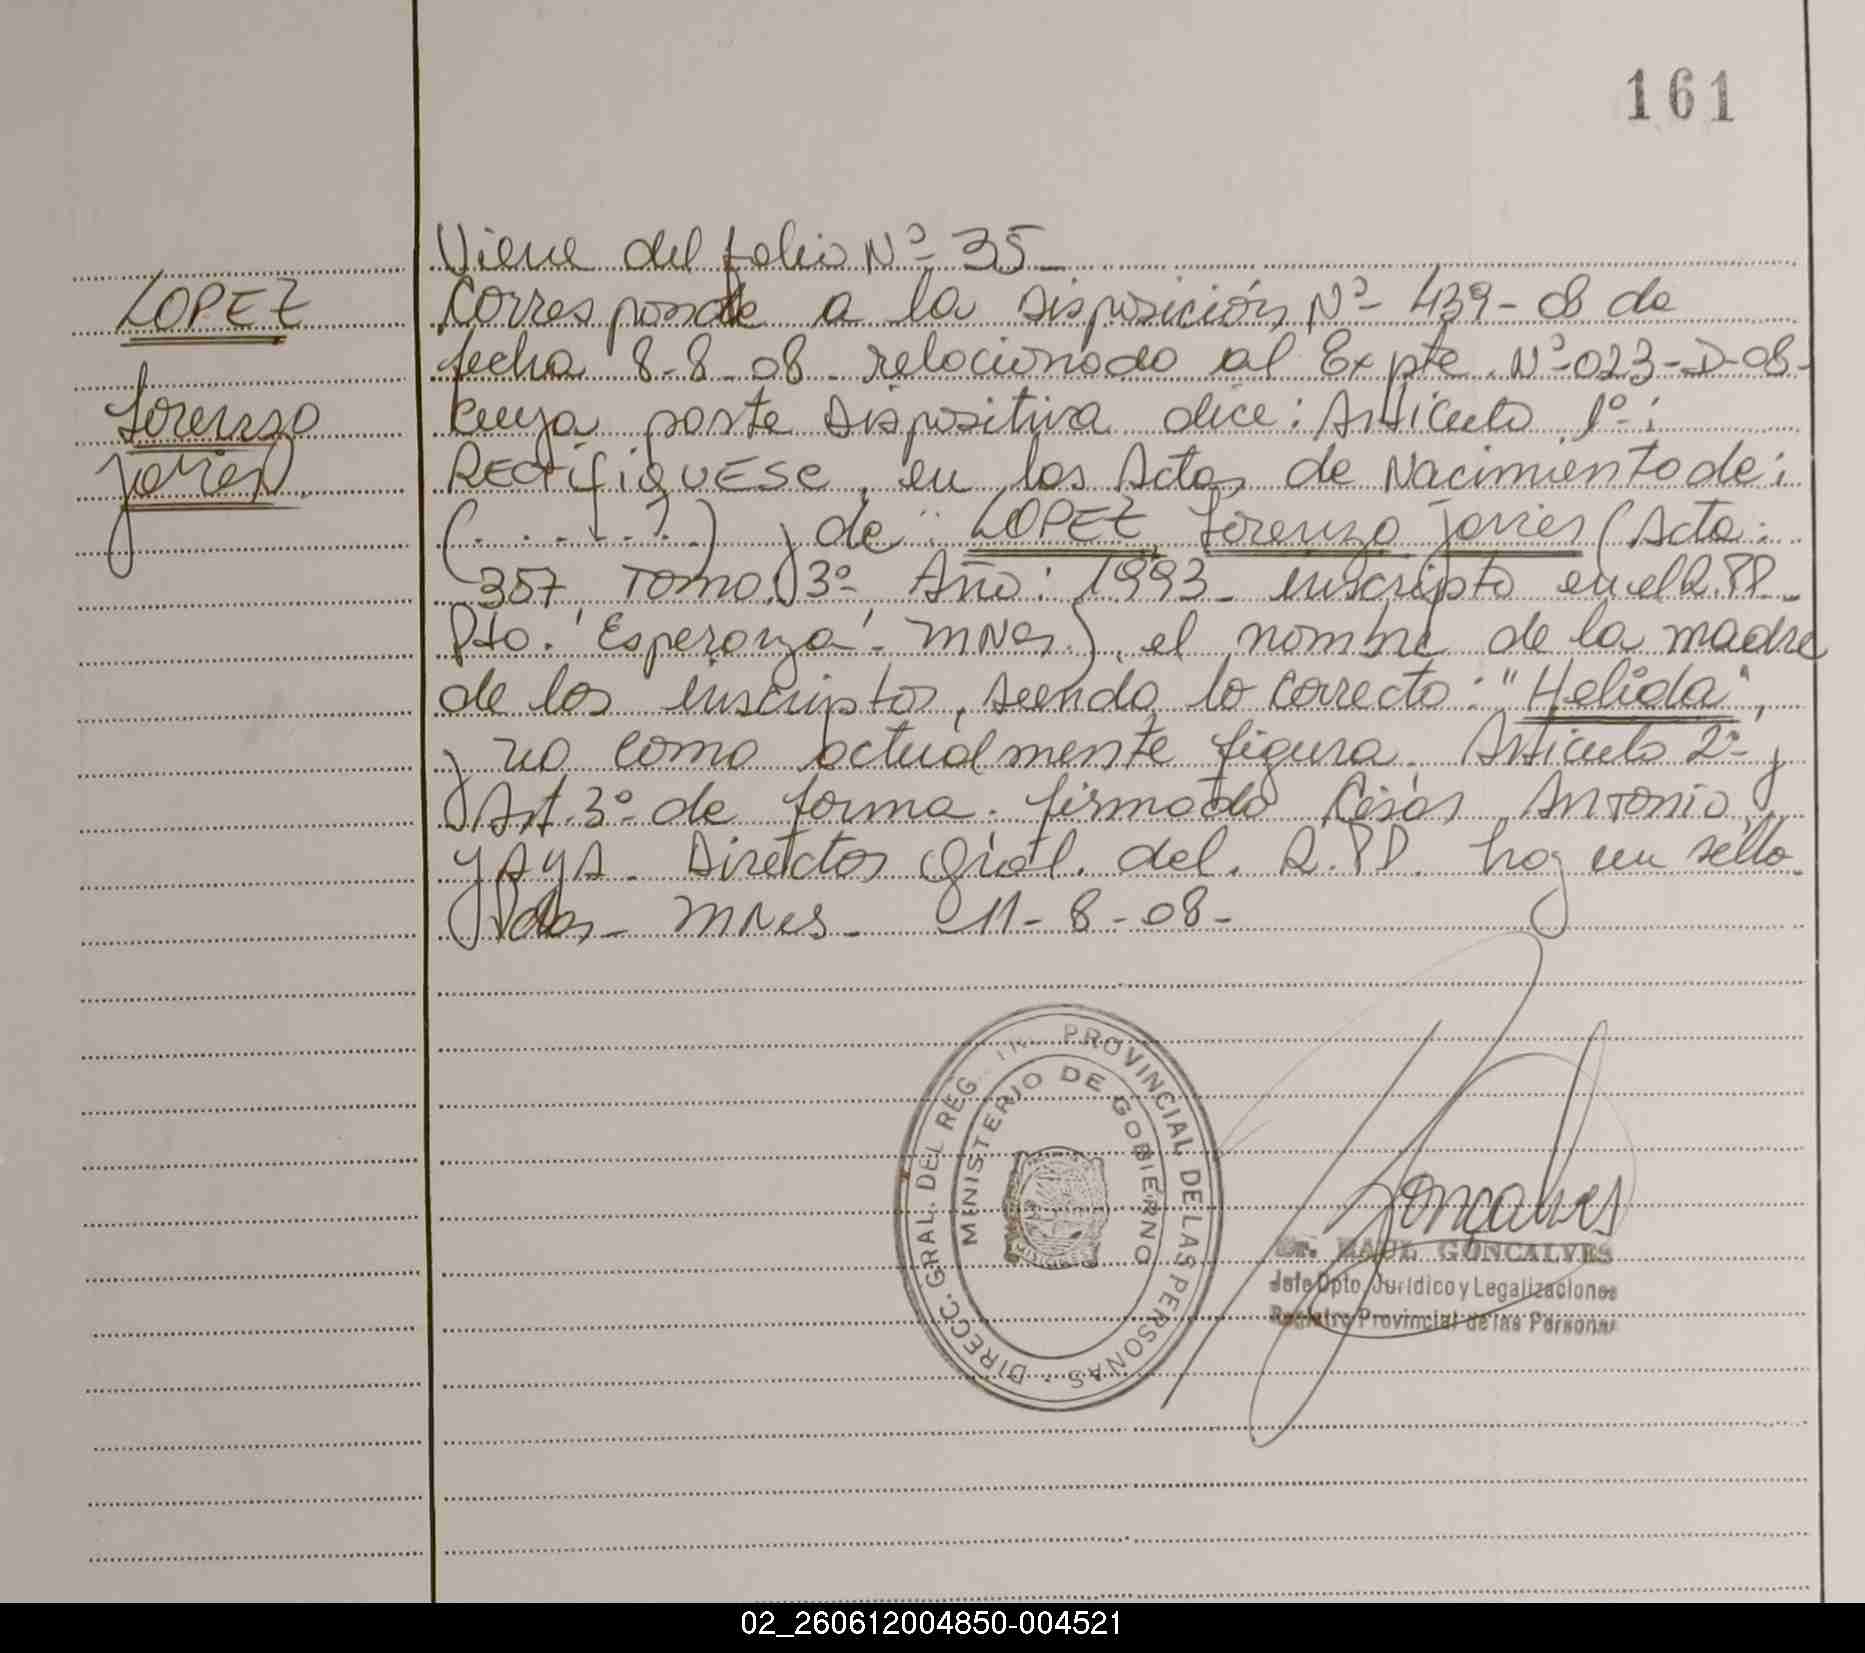 161
Viene del folio Nº 35-
LOPEZ
Lorenzo
Javier.
Corresponde a la Disposición Nº- 439-08 de
fecha 8-8-08 relacionado al Expte. Nº-023-D-08-
Cuya parte Dispositiva dice: Articulo 1º:
RECtifiQUESE, en las Actas de Nacimiento de:
(......) y de: LOPEZ Lorenzo Javier (Acta:
357, Tomo: 3º, Año: 1993- inscripto en el R.PP-
Pto. 'Esperanza'- MNes.), el nombre de la madre
de los inscriptos, siendo lo correcto: "Helida",
y no como actualmente figura. Articulo 2º- y
Art. 3º de forma. firmado César Antonio
YAYA. Director Gral. del. R.PP. hay un sello
Pdas- MNes- 11-8-08-
DIRECC. GRAL. DEL REG. PROVINCIAL DE LAS PERSONAS
MINISTERIO DE GOBIERNO
MISIONES
Goncalves
Dr. RAUL GONCALVES
Jefe Dpto. Jurídico y Legalizaciones
Registro Provincial de las Personas
02_260612004850-004521